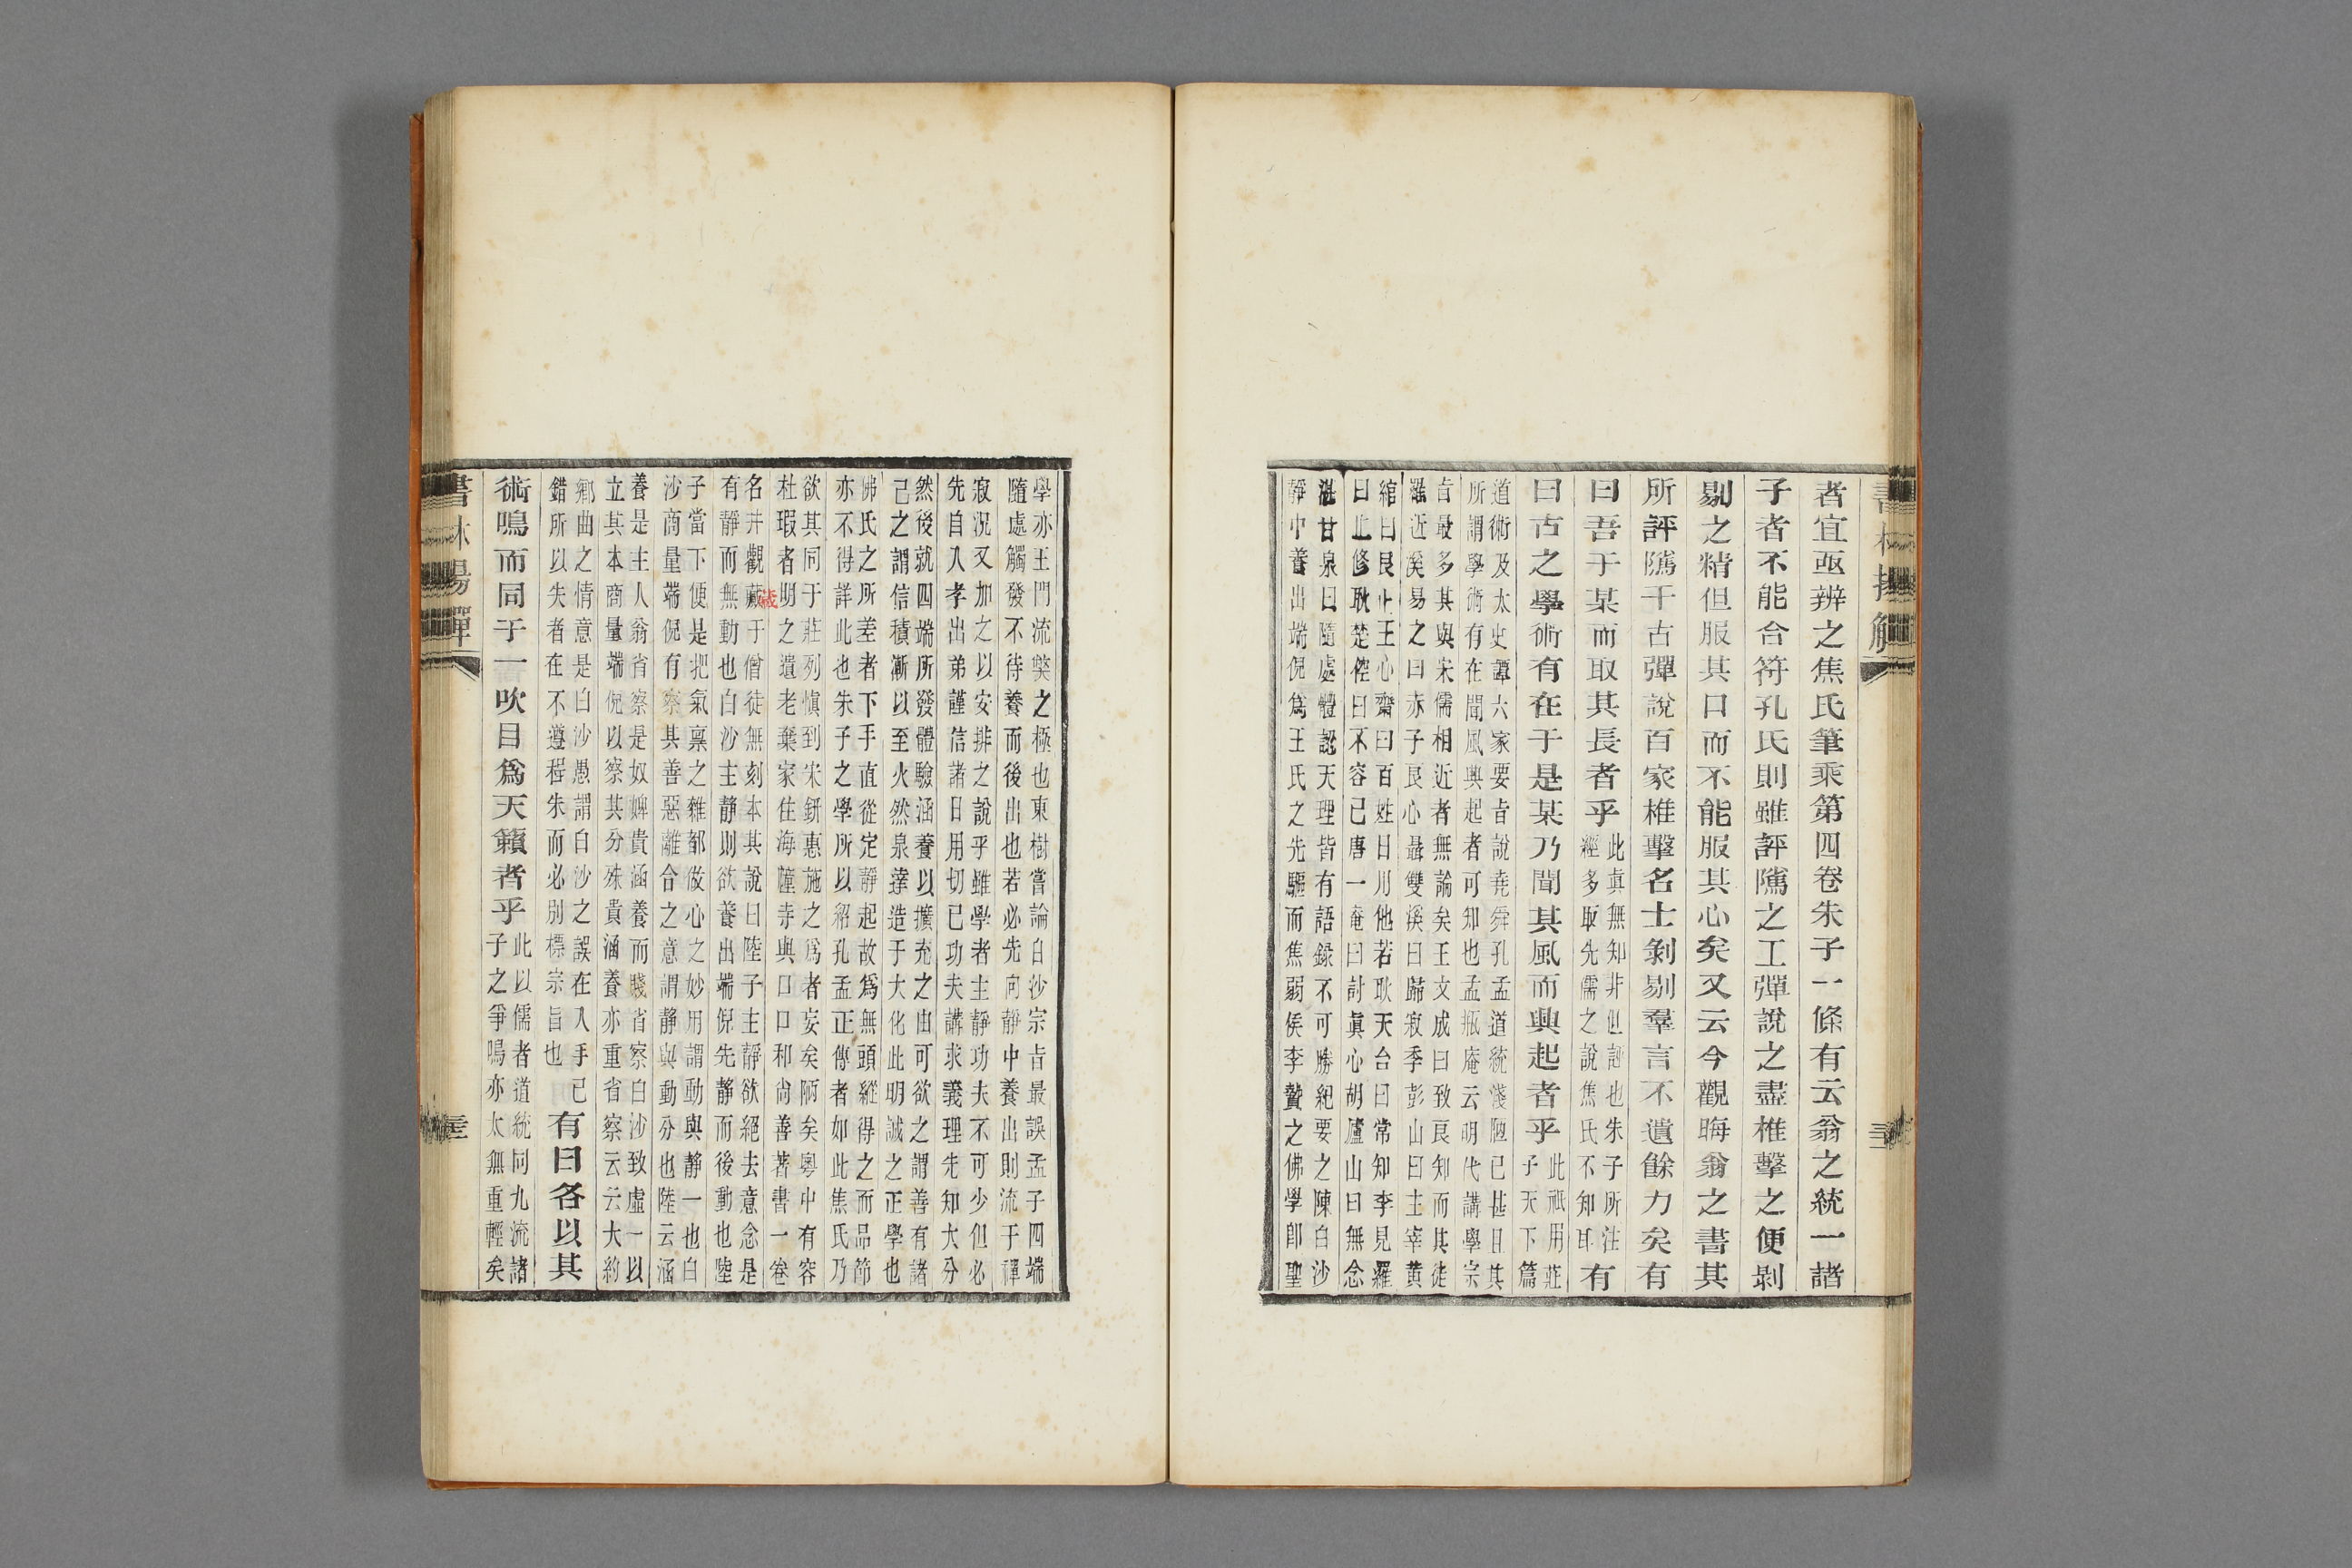 者宜亟辨之焦氏筆乘第四卷朱子一條有云翁之統一諧
子者不能合符孔氏則雖評隲之工彈說之盡椎擊之便剝
剔之精但服其口而不能服其心矣又云今觀晦翁之書其
所評隲千古彈說百家椎擊名士剝剔羣言不遺餘力矣有
曰吾于某而取其長者乎
此眞無知非但誣也朱子所注
經多取先儒之說焦氏不知耳
有
曰古之學術有在于是某乃聞其風而興起者乎
此祇用莊
子天下篇
道術及太史譚六家要旨說堯舜孔孟道統淺陋已甚且其
所謂學術有在聞風興起者可知也孟瓶庵云明代講學宗
旨最多其與宋儒相近者無論矣王文成曰致良知而其徒
羅近溪易之曰赤子良心聶雙溪曰歸寂季彭山曰主宰黃
綰曰艮止王心齋曰百姓日用他若耿天台曰常知李見羅
曰止修耿楚倥曰不容已唐一庵曰討眞心胡廬山曰無念
湛甘泉曰隨處體認天理皆有語錄不可勝紀要之陳白沙
靜中養出端倪爲王氏之先驅而焦弱侯李贄之佛學卽聖
學亦王門流獘之極也東樹嘗論白沙宗旨最誤孟子四端
隨處觸發不待養而後出也若必先向靜中養出則流于禪
寂況又加之以安排之說乎雖學者主靜功夫不可少但必
先自入孝出弟謹信諸日用切已功夫講求義理先知大分
然後就四端所發體驗涵養以擴充之由可欲之謂善有諸
己之謂信積漸以至火然泉達造于大化此明誠之正學也
佛氏之所差者下手直從定靜起故爲無頭縱得之而品節
亦不得詳此也朱子之學所以紹孔孟正傳者如此焦氏乃
欲其同于莊列愼到宋鈃惠施之爲者妄矣陋矣粵中有容
杜瑕者明之遺老棄家住海幢寺與口口和尙善著書一卷
名井觀藏于僧徒無刻本其說曰陸子主靜欲絕去意念是
藏
有靜而無動也白沙主靜則欲養出端倪先靜而後動也陸
子當下便是把氣禀之雜都做心之妙用謂動與靜一也白
沙商量端倪有察其善惡離合之意謂靜與動分也陸云涵
養是主人翁省察是奴婢貴涵養而賤省察白沙致虛一以
立其本商量端倪以察其分殊貴涵養亦重省察云云大約
鄕曲之情意是白沙愚謂白沙之誤在入手已
錯所以失者在不遵程朱而必別標宗旨也
有曰各以其
術鳴而同于一吹目爲天籟者乎
此以儒者道統同九流諸
子之爭鳴亦太無重輕矣